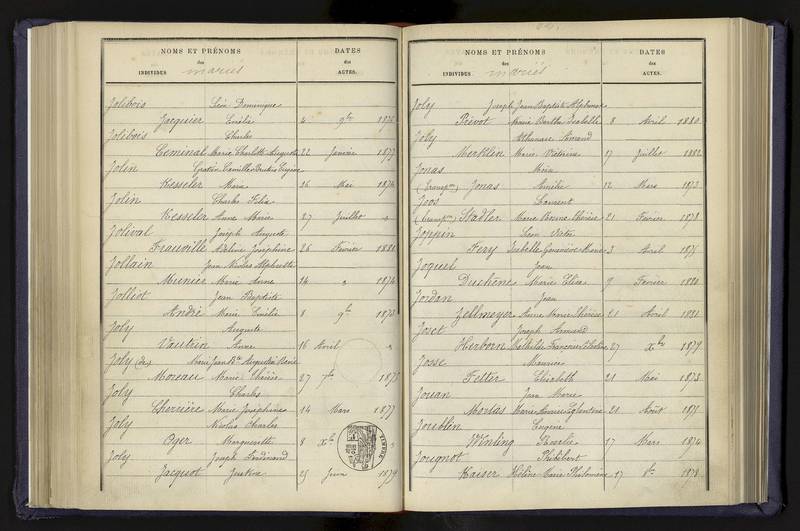 NOMS ET PRÉNOMS
des
INDIVIDUS mariés
DATES
des
ACTES.
Jolibois Léon Dominique
Jacquier Emélie 4 9bre
Jolibois Charles
Ceminal Marie Charlotte Auguste 22 Janvier 1877
Jolin Camille
Kesseler Marie 26 Mai 1874
Jolin Charles Felix
Kesseler Anne Marie 27 Juillet "
Jolival Joseph Auguste
Frauville Adeline Joséphine 26 Février 1881
Jollain Jean Nicolas Alphonse
Munier Marie Anne 24 " 1874
Jolliot Jean Baptiste
André Marie Emélie 8 9bre 1873
Joly Auguste
Vautrin Anne 16 Avril "
Joly (de) Marie Jean Bte Augustin René
Moreau Marie Thérèse 27 7bre 1875
Joly Charles
Charrière Marie Joséphine 14 Mars 1877
Joly Nicolas Charles
Oger Marguerite 8 Xbre "
Joly Joseph Ferdinand
Jacquot Justine 25 Juin 1879
NOMS ET PRÉNOMS
des
INDIVIDUS mariés
DATES
des
ACTES.
Joly Joseph Jean Baptiste Alphonse
Prévot Marie Berthe Isabelle 8 Avril 1880
Joly Athanase Armand
Merklin Marie Victorine 17 Juillet 1882
Jonas
Jonas Amélie 12 Mars 1873
Joos Laurent
Stadler Marie Bonne Thérèse 21 Février 1878
Joppin Léon Victor
Fery Isabelle Geneviève Marie 3 Avril 1875
Joquel Jean
Duchêne Marie Elise 9 Février 1880
Jordan Jean
Zellmeyer Anne Marie Thérèse 21 Avril 1881
Joset Joseph Armand
Herborn Mathilde 27 Xbre 1879
Josse Maurice
Fetter Elisabeth 21 Mai 1873
Jouan Jean Marie
Marie 21 Août 1875
Joublin Eugène
Winling Rosalie 17 Mars 1874
Jougnot Philibert
Kaiser Hélène Marie Philomène 17 8bre 1878